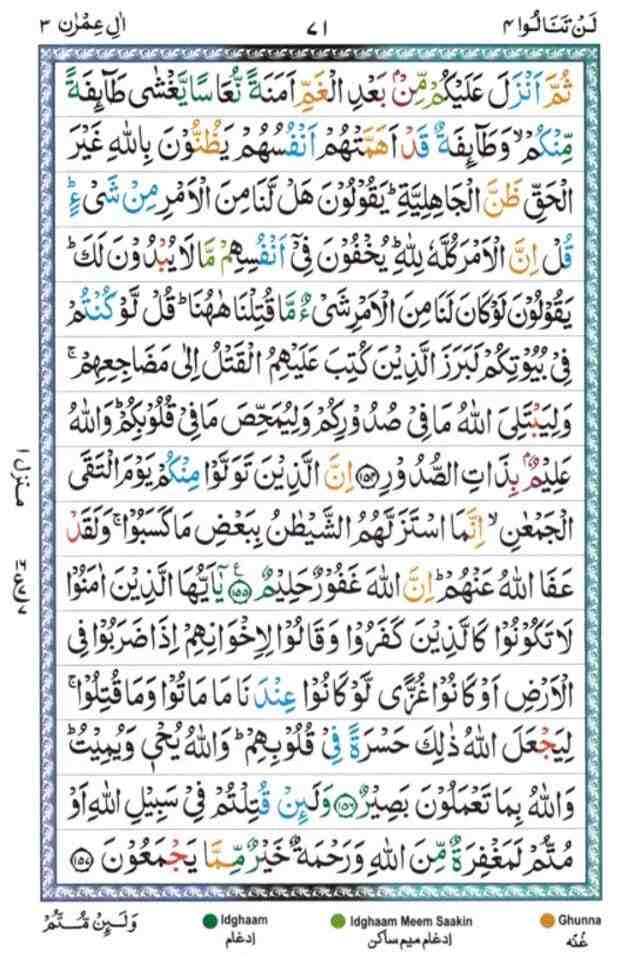 لَنْ تَنَالُوا ٤
٧١
اٰلِ عِمْرٰن ٣
ثُمَّ اَنْزَلَ عَلَيْكُمْ مِّنْۢ بَعْدِ الْغَمِّ اَمَنَةً نُّعَاسًا يَّغْشٰى طَآئِفَةً
مِّنْكُمْ ۙ وَطَآئِفَةٌ قَدْ اَهَمَّتْهُمْ اَنْفُسُهُمْ يَظُنُّوْنَ بِاللّٰهِ غَيْرَ
الْحَقِّ ظَنَّ الْجَاهِلِيَّةِ ؕ يَقُوْلُوْنَ هَلْ لَّنَا مِنَ الْاَمْرِ مِنْ شَىْءٍ ؕ
قُلْ اِنَّ الْاَمْرَ كُلَّهٗ لِلّٰهِ ؕ يُخْفُوْنَ فِىْۤ اَنْفُسِهِمْ مَّا لَا يُبْدُوْنَ لَكَ ؕ
يَقُوْلُوْنَ لَوْ كَانَ لَنَا مِنَ الْاَمْرِ شَىْءٌ مَّا قُتِلْنَا هٰهُنَا ؕ قُلْ لَّوْ كُنْتُمْ
فِىْ بُيُوْتِكُمْ لَبَرَزَ الَّذِيْنَ كُتِبَ عَلَيْهِمُ الْقَتْلُ اِلٰى مَضَاجِعِهِمْ ۚ
وَلِيَبْتَلِىَ اللّٰهُ مَا فِىْ صُدُوْرِكُمْ وَلِيُمَحِّصَ مَا فِىْ قُلُوْبِكُمْ ؕ وَاللّٰهُ
عَلِيْمٌۢ بِذَاتِ الصُّدُوْرِ ﴿١٥٤﴾ اِنَّ الَّذِيْنَ تَوَلَّوْا مِنْكُمْ يَوْمَ الْتَقَى
الْجَمْعٰنِ ۙ اِنَّمَا اسْتَزَلَّهُمُ الشَّيْطٰنُ بِبَعْضِ مَا كَسَبُوْا ۚ وَلَقَدْ
عَفَا اللّٰهُ عَنْهُمْ ؕ اِنَّ اللّٰهَ غَفُوْرٌ حَلِيْمٌ ﴿١٥٥﴾ يٰۤاَيُّهَا الَّذِيْنَ اٰمَنُوْا
لَا تَكُوْنُوْا كَالَّذِيْنَ كَفَرُوْا وَقَالُوْا لِاِخْوَانِهِمْ اِذَا ضَرَبُوْا فِى
الْاَرْضِ اَوْ كَانُوْا غُزًّى لَّوْ كَانُوْا عِنْدَنَا مَا مَاتُوْا وَمَا قُتِلُوْا ۚ
لِيَجْعَلَ اللّٰهُ ذٰلِكَ حَسْرَةً فِىْ قُلُوْبِهِمْ ؕ وَاللّٰهُ يُحْىٖ وَيُمِيْتُ ؕ
وَاللّٰهُ بِمَا تَعْمَلُوْنَ بَصِيْرٌ ﴿١٥٦﴾ وَلَئِنْ قُتِلْتُمْ فِىْ سَبِيْلِ اللّٰهِ اَوْ
مُتُّمْ لَمَغْفِرَةٌ مِّنَ اللّٰهِ وَرَحْمَةٌ خَيْرٌ مِّمَّا يَجْمَعُوْنَ ﴿١٥٧﴾
منزل ١
وَلَئِنْ مُّتُّمْ
Idghaam
ادغام
Idghaam Meem Saakin
ادغام میم ساکن
Ghunna
غُنّه